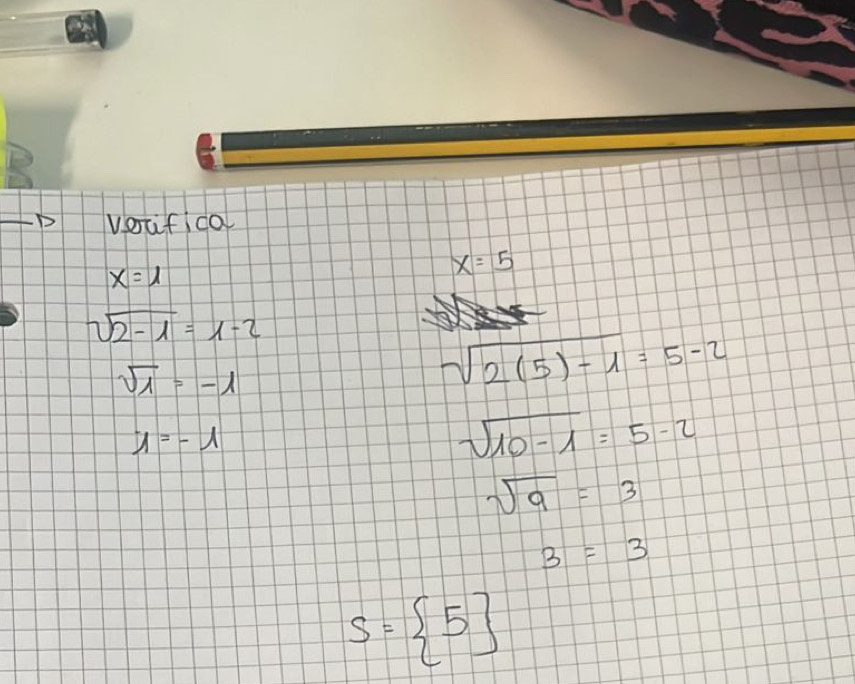 → Verifica
x=1
√2-1 = 1-2
√1 = -1
1=-1
x=5
√2(5)-1 = 5-2
√10-1 = 5-2
√9 = 3
3 = 3
S={5}